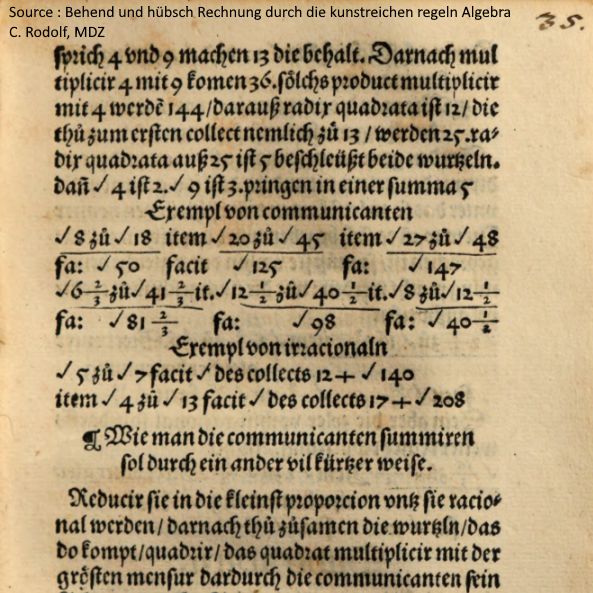 Source : Behend und hübsch Rechnung durch die kunstreichen regeln Algebra
C. Rodolf, MDZ
35.
sprich 4 vnd 9 machen 13 die behalt. Darnach mul
tiplicir 4 mit 9 komen 36. sölchs product multiplicir
mit 4 werdē 144/darauß radix quadrata ist 12/ die
thů zum ersten collect nemlich zů 13 / werden 25. ra⸗
dix quadrata auß 25 ist 5 beschleüßt beide wurtzeln.
dañ √ 4 ist 2. √ 9 ist 3. pringen in einer summa 5
Exempl von communicanten
√ 8 zů √ 18 item √ 20 zů √ 45 item √ 27 zů √ 48
fa: √ 50 facit √ 125 fa: √ 147
√ 6 2/3 zů √ 41 2/3 it. √ 12 1/2 zů √ 40 1/2 it. √ 8 zů √ 12 1/2
fa: √ 81 2/3 fa: √ 98 fa: √ 40 1/2
Exempl von irracionaln
√ 5 zů √ 7 facit √ des collects 12 + √ 140
item √ 4 zů √ 13 facit √ des collects 17 + √ 208
¶ Wie man die communicanten summiren
sol durch ein ander vil kürtzer weise.
Reducir sie in die kleinst proporcion vntz sie racio⸗
nal werden/ darnach thů zůsamen die wurtzln/das
do kompt/quadrir/ das quadrat multiplicir mit der
grösten mensur dardurch die communicanten sein